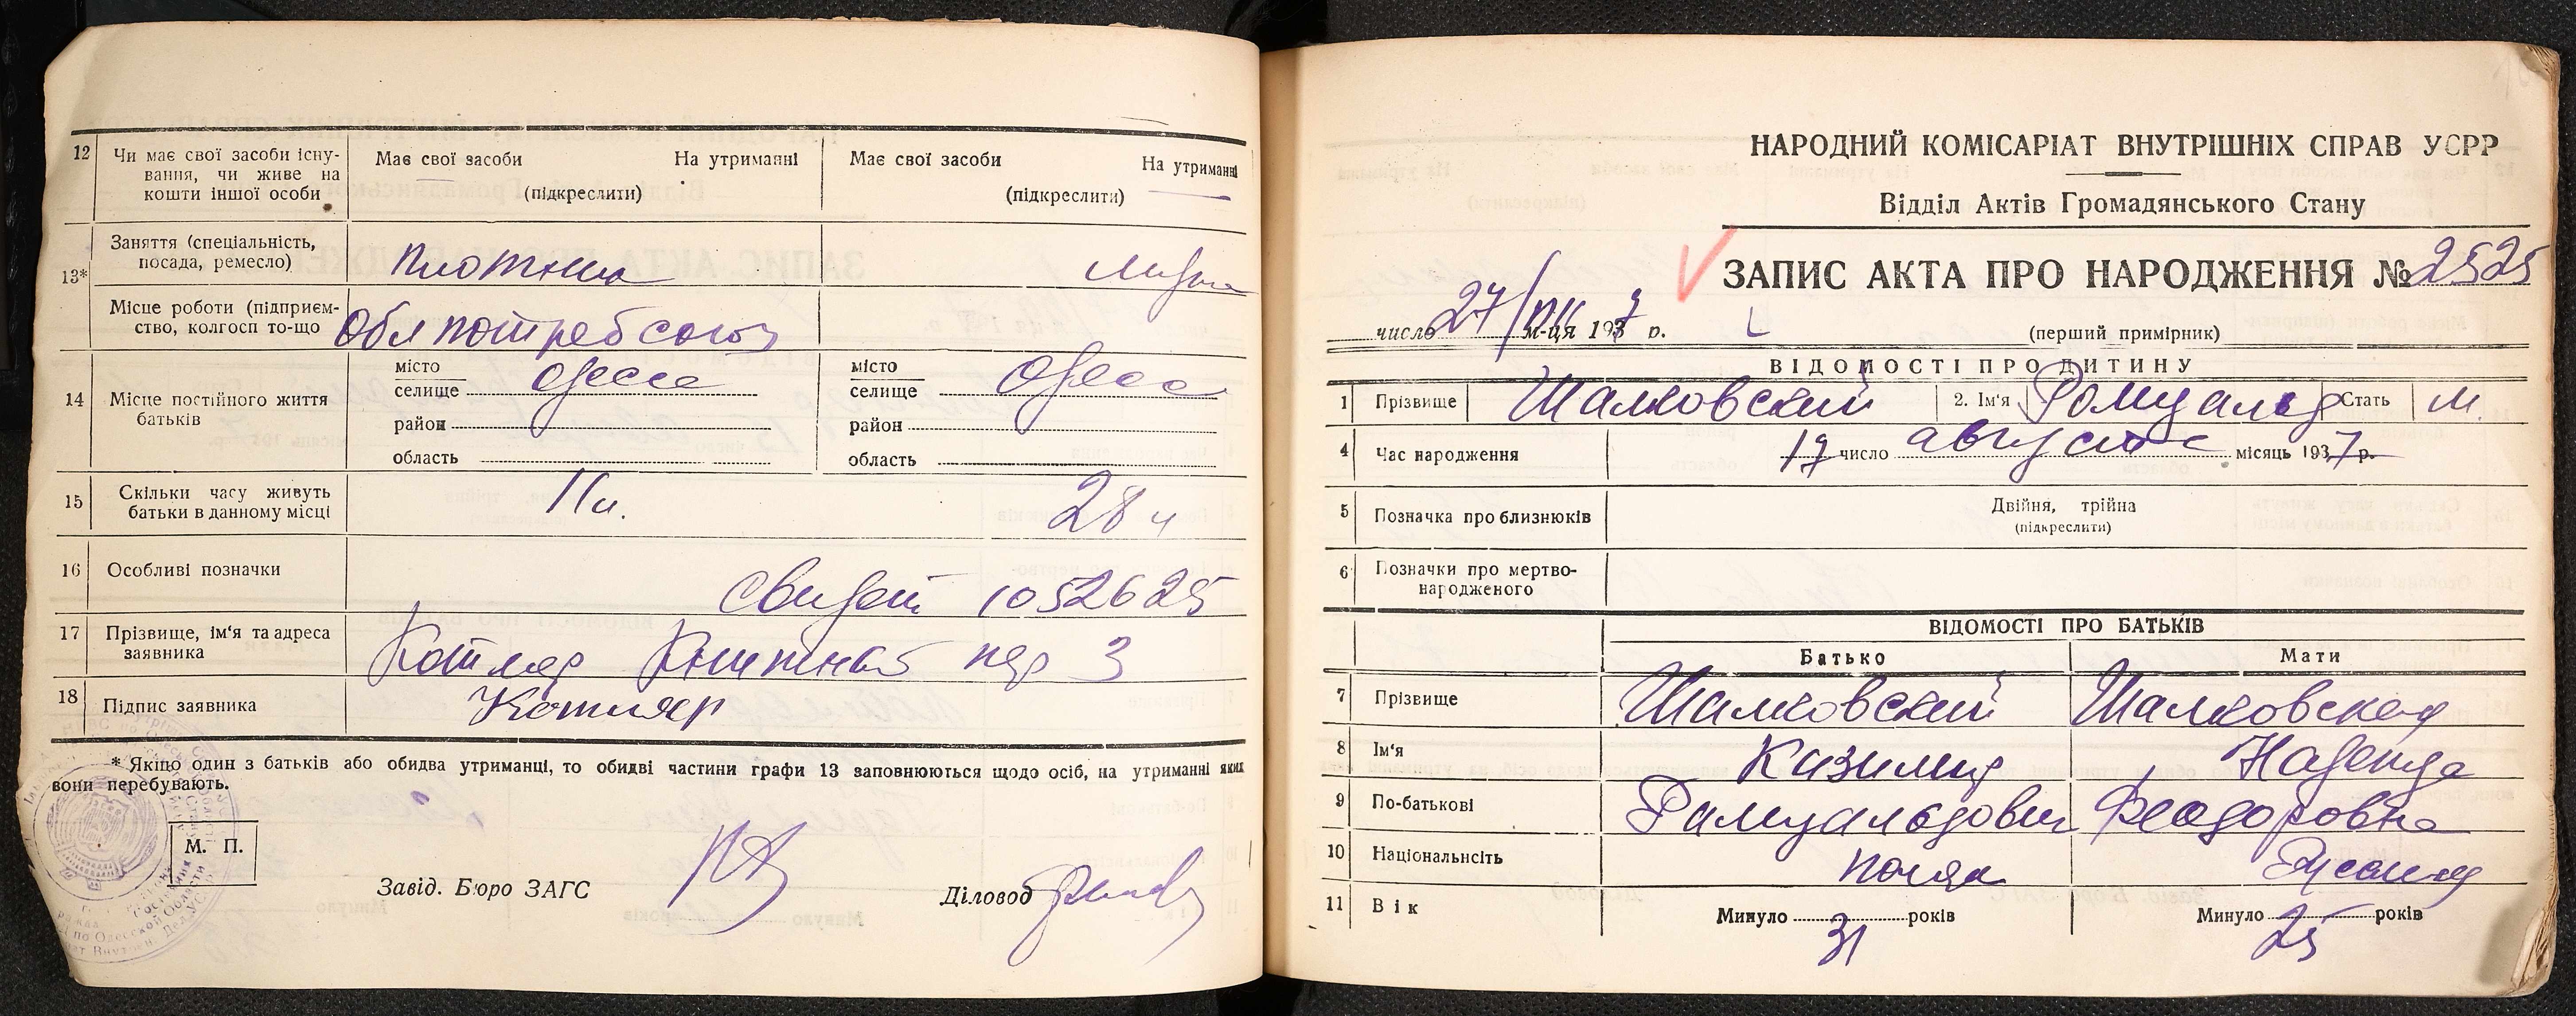 12 Чи має свої засоби існу-
вання, чи живе на
кошти іншої особи
Має свої засоби На утриманні
(підкреслити)
Має свої засоби На утриманні
(підкреслити)
13* Заняття (спеціальність,
посада, ремесло)
плотник
Місце роботи (підприєм-
ство, колгосп то-що
Облпотребсоюз
14 Місце постійного життя
батьків
місто
селище Одесса
район
область
місто
селище Одесса
район
область
15 Скільки часу живуть
батьки в данному місці
28
16 Особливі позначки
Свидет 1052625
17 Прізвище, ім'я та адреса
заявника
Котляр Книжный пер 3
18 Підпис заявника
Котляр
* Якщо один з батьків або обидва утриманці, то обидві частини графи 13 заповнюються щодо осіб, на утриманні яких
вони перебувають.
М. П.
Завід. Бюро ЗАГС
Діловод
НАРОДНИЙ КОМІСАРІАТ ВНУТРІШНІХ СПРАВ УСРР
Відділ Актів Громадянського Стану
ЗАПИС АКТА ПРО НАРОДЖЕННЯ № 2525
число 27/VIII м-ця 1937 р.
(перший примірник)
ВІДОМОСТІ ПРО ДИТИНУ
1 Прізвище Шалковский 2. Ім'я Ромуальд Стать М.
4 Час народження 17 число августа місяць 1937 р.
5 Позначка про близнюків
Двійня, трійна
(підкреслити)
6 Позначки про мертво-
народженого
ВІДОМОСТІ ПРО БАТЬКІВ
Батько Мати
7 Прізвище Шалковский Шалковская
8 Ім'я Казимир Надежда
9 По-батькові Рамуальдович Феодоровна
10 Національнсіть поляк
11 Вік
Минуло 31 років
Минуло 25 років